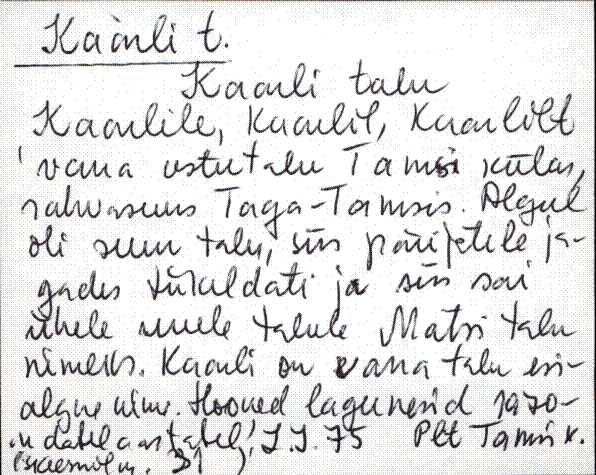 Kaanli t.
Kaanli talu
Kaanlile, Kaanlil, Kaanlilt
vana ostutalu Tamsi külas,
rahvasuus Taga-Tamsis. Algul
oli suur talu, siis pärijatele ja-
gades tükeldati ja siis sai
ühele uuele talule Matsi talu
nimeks. Kaanli on vana talu esi-
algne nimi. Hooned lagunesid 1930-
ndatel aastatel. J.J. 75 Plt Tamsi k.